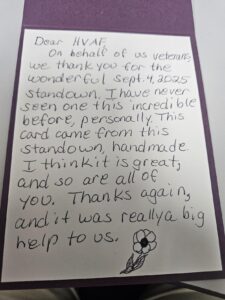 Dear HVAF,
On behalf of us veterans,
we thank you for the
wonderful Sept. 4, 2025
standown. I have never
seen one this incredible
before, personally. This
card came from this
standown, handmade
I think it is great,
and so are all of
you. Thanks again,
and it was really a big
help to us.